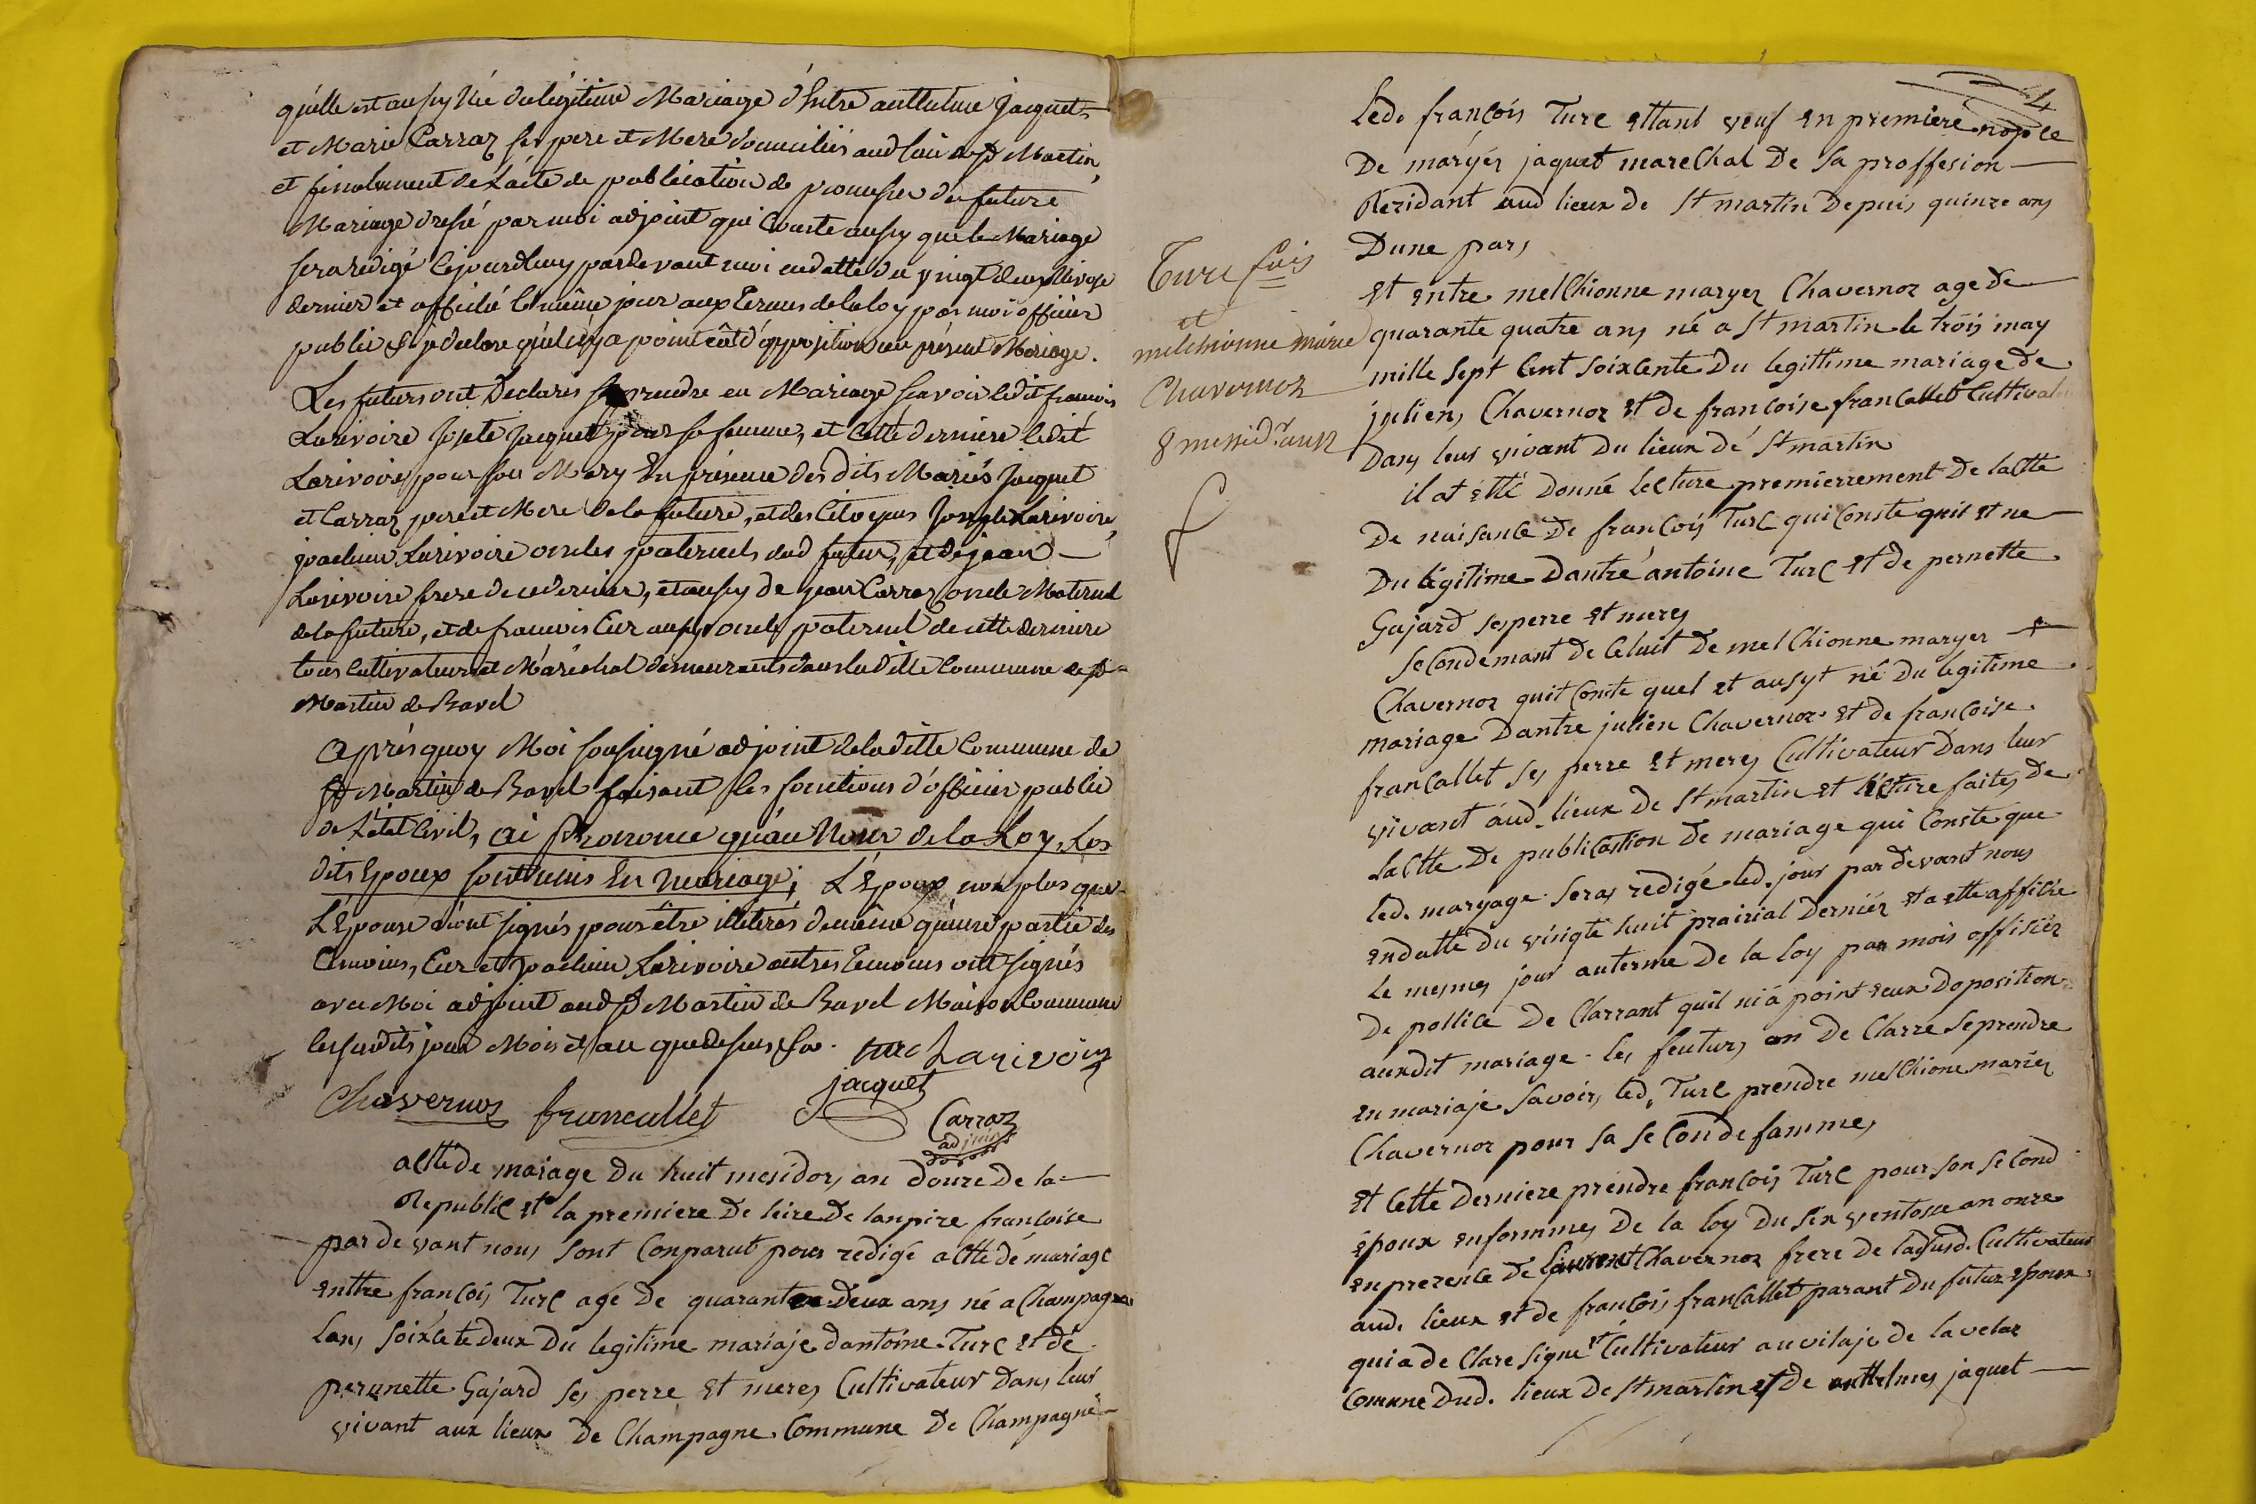 qu'elle est aussy Née du légitime Mariage d'Entre anthelme Jaquet
et Marie Carraz ses pere et Mere domiciliés aud lieu de St Martin,
et finalement de L'acte de publication de promesses du future
Mariage dressé par moi adjoint qui Conste aussy que le Mariage
sera rédigé Cejourdhuy pardevant moi en datte du vingt deux Nivose
dernier et affiché le même jour aux Termes de la loy par moi officier
public & je declare qu'il n'y a point eût d'opposition au présent Mariage.
Les futurs ont Declarés se prendre en Mariage scavoir ledit francois
Larivoire Josete Jacquet pour sa femme, et Cette dernière ledit
Larivoire pour son Mary En présence des dits Mariés Jaquet
et Carraz pere et Mere de la future, et des Citoyens Joseph Larivoire,
joachim Larivoire oncles paternels dud futur, et de jean
Larivoire frere de ce dernier, et aussy de jean Carraz oncle Maternel
de la future, et de francois Eur aussy oncle paternel de cette derniere
tous Cultivateurs et Maréchal demeurants dans laditte Commune de St
Martin de Bavel
Après quoy Moi soussigné adjoint de laditte Commune de
St Martin de Bavel faisant les fonctions d'officier public
de L'état Civil, ai prononcé qu'au Nom de la Loy, Les
dits Epoux sont unis En mariage; L'Epoux non plus que
L'Epouse n'ont signés pour être illeterés de même qu'une partie des
Temoins, Eur et joachim Larivoire autres Temoins ont signés
avec Moi adjoint aud St Martin de Bavel Maison Commune
les susdits jour Mois et an que dessus
turc Larivoire
jacquet
Chavernoz francallet
Carraz
adjoint
actte de maiage du huit mesidor, an douze De la
Republic et la premiere De leire De lanpire francoise
par de vant nous sont Conparut pour redigé actte de mariage
entre francois Turc age de quarante Deux ans né a Champagne
lans soixcete deux Du legitime mariaje dantoine Turc et de
pernnette Gajard ses perre et meres Cultivateur Dans leur
vivant aux lieux De Champagne Commune De Champagne
4
Led. francois Turc ettant veuf en premiere nopce
De maryer jaquet mareChal De sa proffesion
Rezidant aud lieux de St martin Depuis quinze ans
Dune pars
Turc fcois
et
melchionne marie
Chavernoz
8 messidr. an 12
et entre melChionne maryer Chavernoz age de
quarante quatre ans né a St martin le trois may
mille sept Cent soixcente Du legittime mariage de
julien, Chavernoz et de francoise francallet Cultivat
Dans leur vivant Du lieux de St martin
il at etté Donné lecture premierrement De lactte
De naisance De francois Turc qui Conste quit et ne
Du legitime Dantre antoine Turc et de pernette
Gajard ses perre et meres
seCondemant De Celuit De melChionne maryer
Chavernoz quit Conste quel et ausyt né Du legitime
mariage Dantre julien Chavernoz et de francoise
francallet ses perre et meres Cultivateur Dans leur
vivant aud. lieux de St martin et lecture faites De
lactte De publication De mariage qui Conste que
led. maryage seras redigé led. jour par devant nous
en datte du vingte huit prairial Dernier et a ette affiche
le mesmes jour au terme De la loy par mois offisier
De pollice De Clarrant quil ni a point eeux Doposition
auxdit mariage. les feuturs on De Clarre se prendre
en mariaje savoir, led. Turc prendre melChione marier
Chavernoz pour sa seConde famme,
et Cette Derniere prendre francois Turc pour son second
epoux enformmes De la loy Du six ventosse an onze
en prezence de laurent Chavernoz frere de ladusd. Cultivateur
aud. lieux et de francois francallet parant Du futur epoux
qui a de Clare signe et Cultivateur au vilaje de lavelaz
Comune Dud. lieux De St martin et De anthelmes jaquet